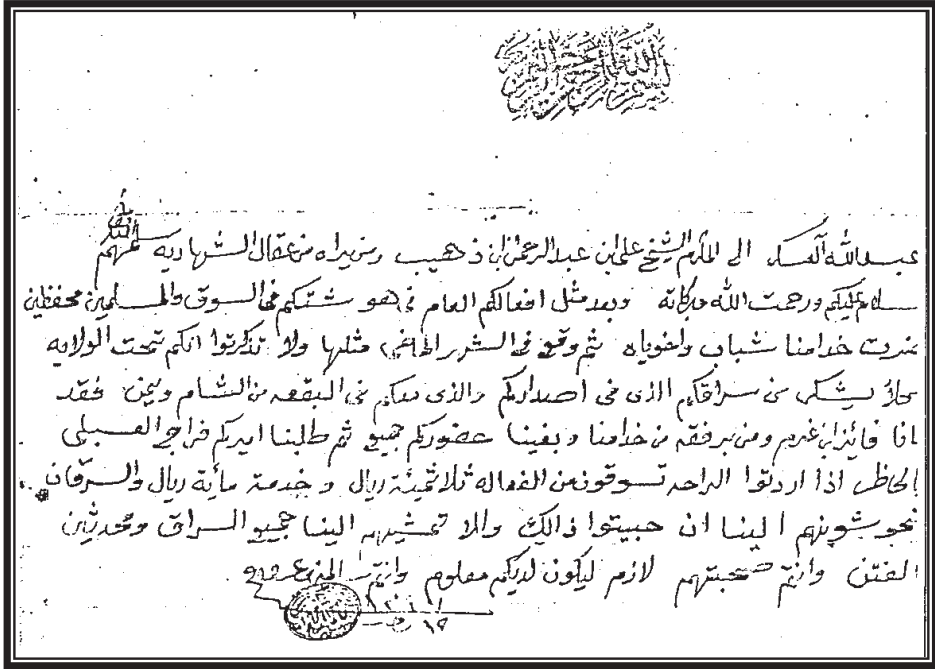 بسم الله الرحمن الرحيم
عبد الله آل عسكر الى المكرم الشيخ علي ابن عبد الرحمن ابن ذهيب ومن يراه من عقال الشهاريه سلمهم الله
سلام عليكم ورحمت الله وبركاته وبعد مثل افعالكم العام في هو شتكم في السوق والمسلمين محفظين
خدامنا شباب واخوياه ثم وقع في الشهر الماضي مثلها ولا تذكرتوا انكم تحت الولايه
من سراقكم الذي في والذي معكم في البقعه من الشام ويمن فقد
انا فائز ابن غرم ومن برفقه من خدامنا وبغينا حضوركم جميع ثم طلبنا اميركم فراج العسبلي
اذا اردتوا الراحه تسوقون من الفعاله ثلاثمئة ريال وخدمة مائة ريال والسرقان
الينا ان حبيتوا ذالك والا الينا جميع السراق ومحدثين
الفتن وانتم صحبتهم لازم ليكون لديكم معلوم وانتم